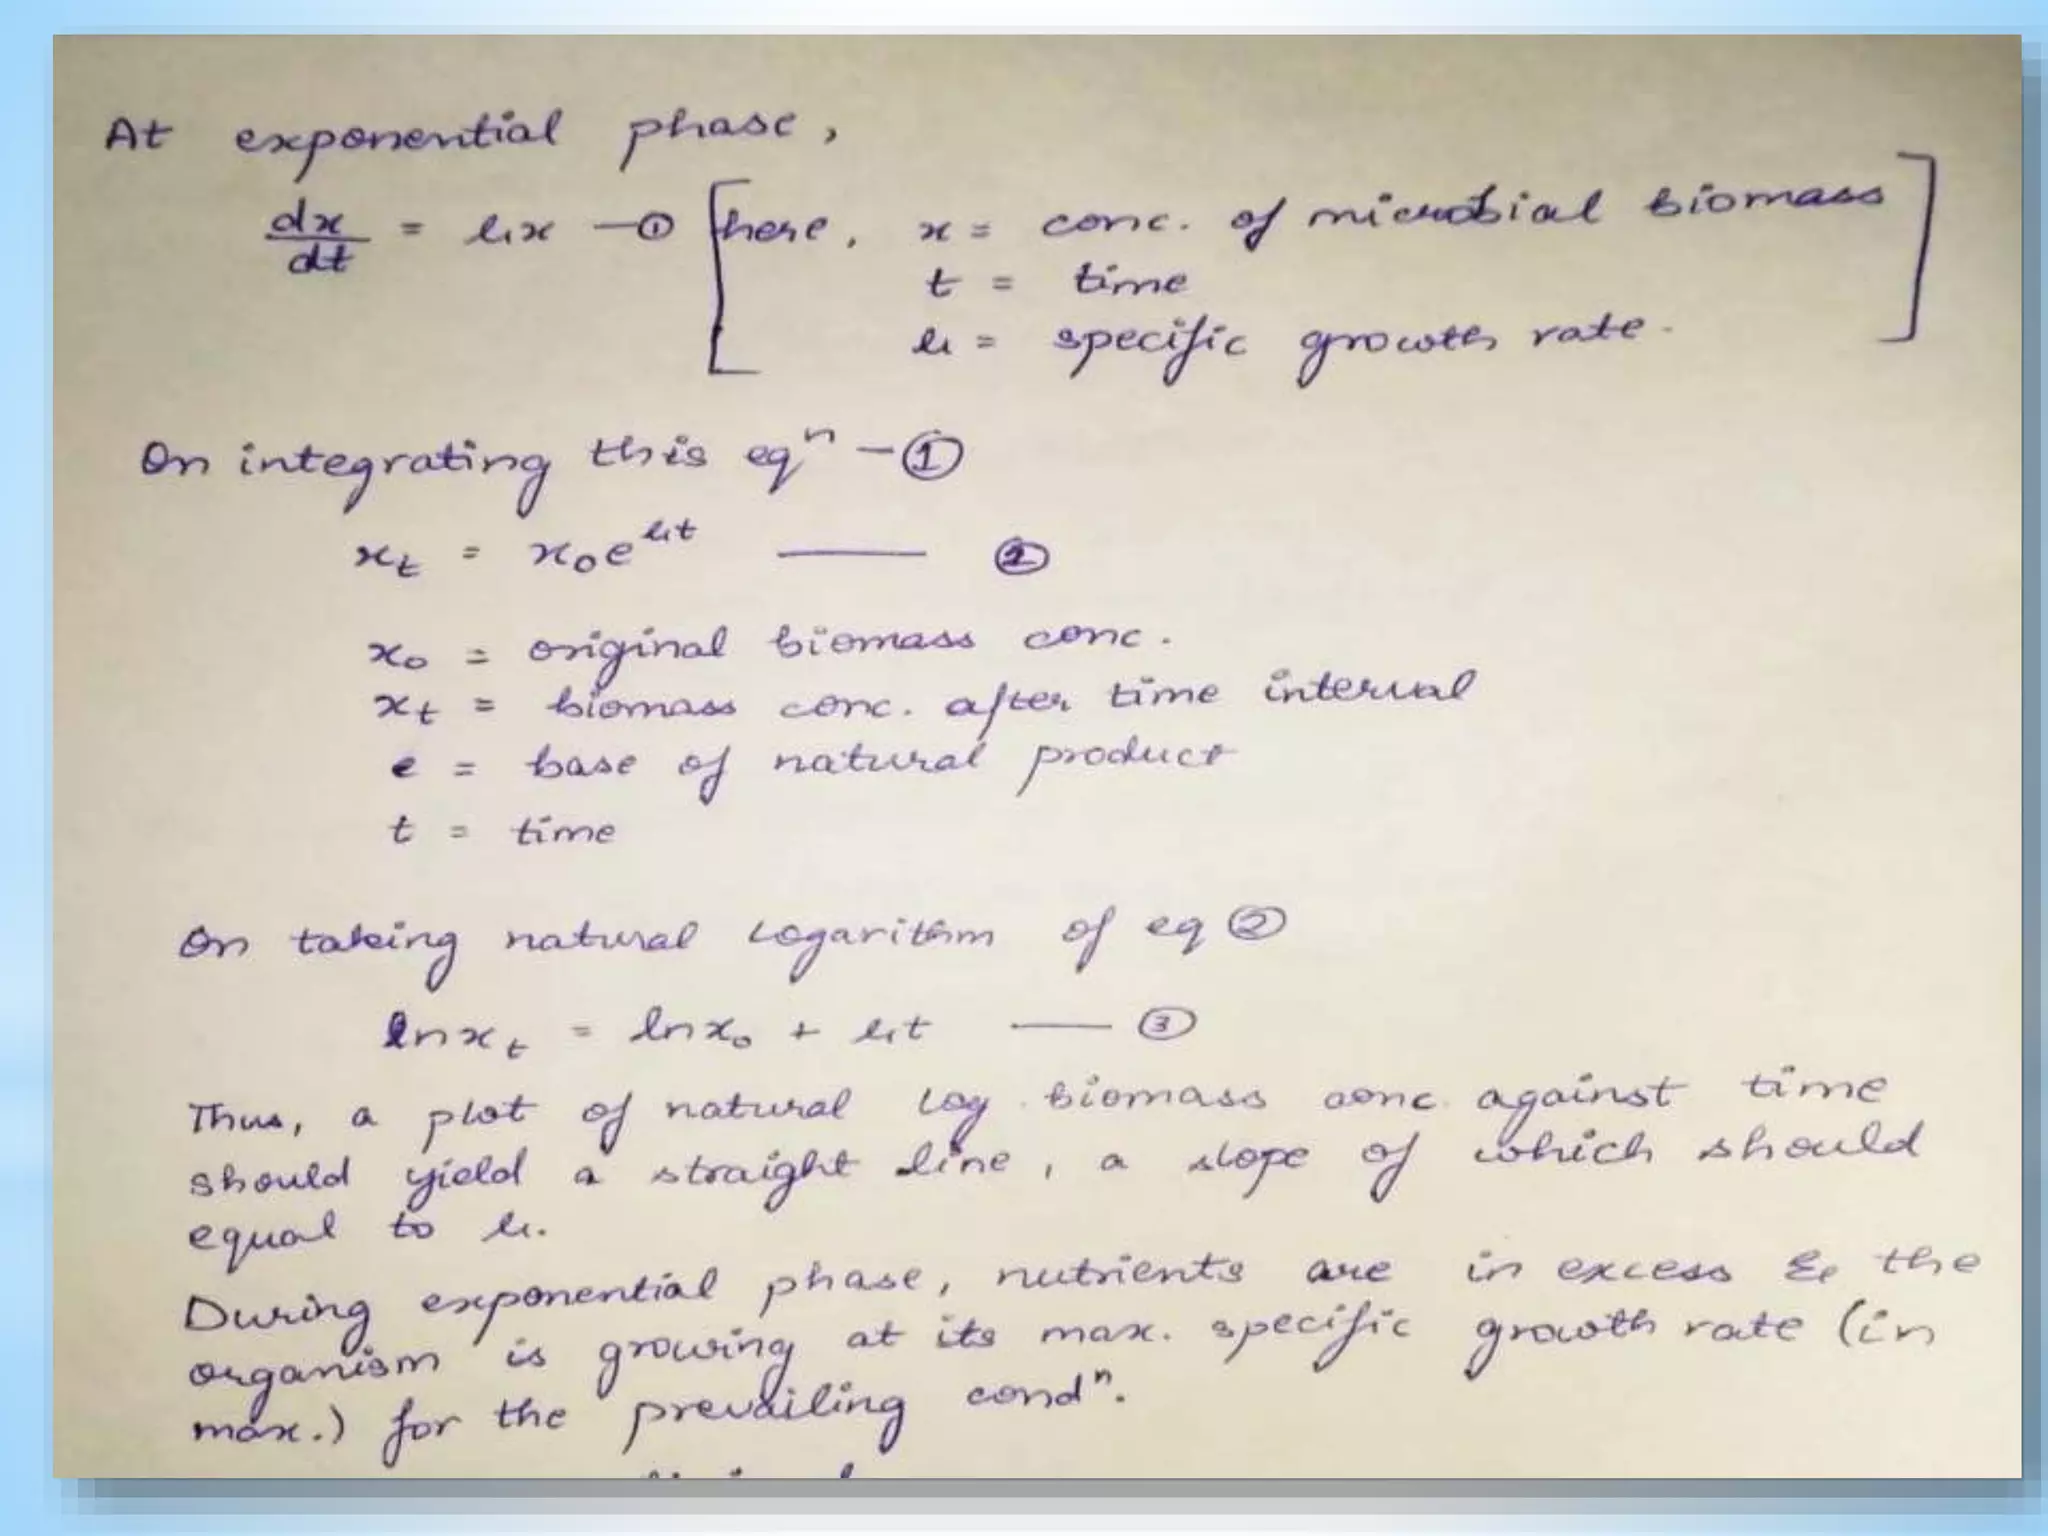 At exponential phase,
dx/dt = µx —① [here, x = conc. of microbial biomass
t = time
µ = specific growth rate.]
On integrating this eqⁿ —①
xₜ = x₀e^µt —— ②
x₀ = original biomass conc.
xₜ = biomass conc. after time interval
e = base of natural product
t = time
On taking natural logarithm of eq ②
lnxₜ = lnx₀ + µt —— ③
Thus, a plot of natural log biomass conc. against time
should yield a straight line, a slope of which should
equal to µ.
During exponential phase, nutrients are in excess & the
organism is growing at its max. specific growth rate (in
max.) for the prevailing condⁿ.